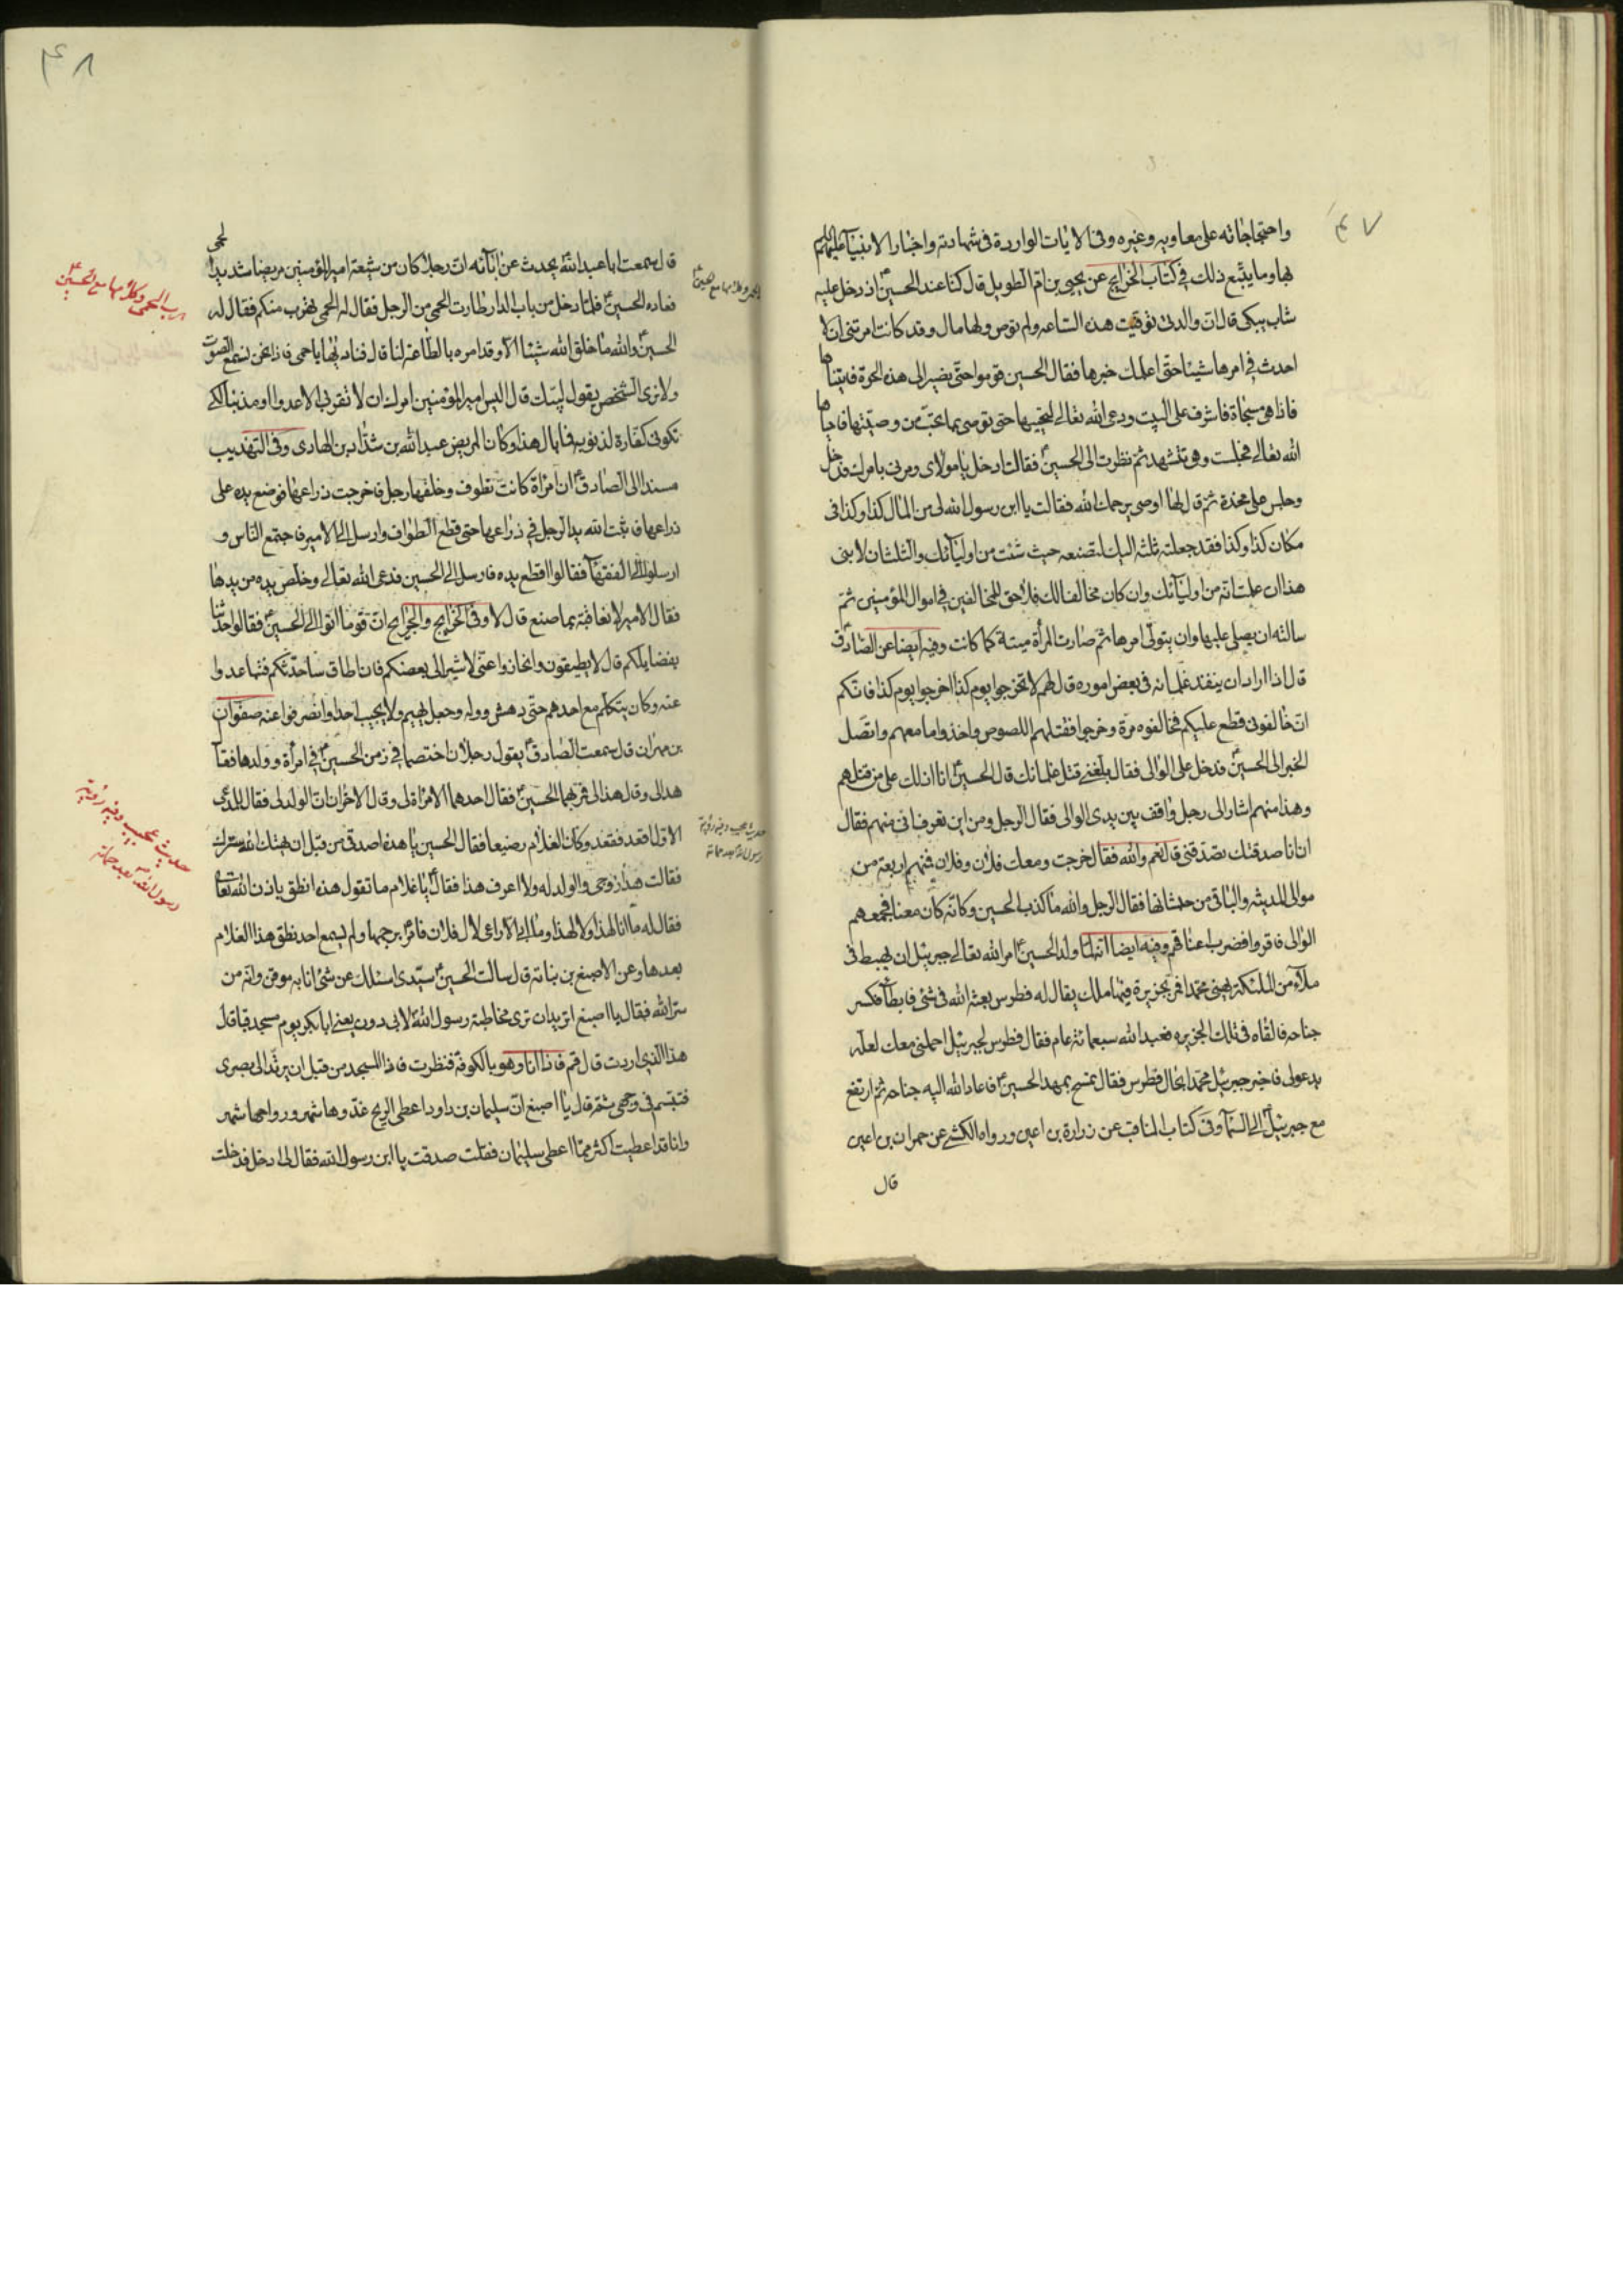 ٤٧
واحتجاجاته على معاويه وغيره وفى الايات الواردة فى شهادته واخبار الانبيآ عليهم
بها وما يتبع ذلك فى كتاب الخرايج عن يحيى بن ام الطويل قال كنا عند الحسين اذ دخل عليه
شاب يبكى قال ان والدتى توفيت هذه الساعه ولم توص ولها مال وقد كانت امرتنى ان لا
احدث فى امرها شيئا حتى اعلمك خبرها فقال الحسين قوموا حتى نصير الى هذه الحرة فاتينا
فاذا هى مسجاة فاشرف على البيت ودعى الله تعالى ليحييها حتى توصى بما تحب من وصيتها فاحياها
الله تعالى فجلست وهى تتشهد ثم نظرت الى الحسين فقالت ادخل يا مولاى ومرنى بامرك فدخل
وجلس على مخدة ثم قال لها اوصى يرحمك الله فقالت يا ابن رسول الله لى من المال كذا وكذا فى
مكان كذا وكذا فقد جعلت ثلثه اليك لتضعه حيث شئت من اوليآئك والثلثان لابنى
هذا ان علمت انه من اوليآئك وان كان مخالفا لك فلا حق للمخالفين فى اموال المؤمنين ثم
سالته ان يصلى عليها وان يتولى امرها ثم صارت المرأة ميتة كما كانت وفيه ايضا عن الصادق
قال اذا اراد ان ينفذ غلمانه فى بعض اموره قال لهم لا تخرجوا يوم كذا اخرجوا يوم كذا فانكم
ان خالفتونى قطع عليكم فخالفوه مرة وخرجوا فقتلهم اللصوص واخذوا ما معهم واتصل
الخبر الى الحسين فدخل على الوالى فقال بلغنى قتل غلمانك قال الحسين انا ادلك على من قتلهم
وهذا منهم اشار الى رجل واقف بين يدى الوالى فقال الرجل ومن اين تعرف انى منهم فقال
ان انا صدقتك تصدقنى قال نعم والله فقال خرجت ومعك فلان وفلان فمنهم اربعة من
موالى المدينه والباقى من فقال الرجل والله ما كذب الحسين وكانه كان معنا فجمعهم
الوالى فاقروا فضرب اعناقهم وفيه ايضا انه لما ولد الحسين امر الله تعالى جبرئيل ان يهبط فى
ملآء من الملئكة يهنى محمدا فمر بجزيرة فيها ملك يقال له فطرس بعثه الله فى شئ فابطأ فكسر
جناحه فالقاه فى تلك الجزيره فعبد الله سبعمائة عام فقال فطرس لجبرئيل احملنى معك لعله
يدعو لى فاخبر جبرئيل محمدا بحال فطرس فقال تمسح بمهد الحسين فاعاد الله اليه جناحه ثم ارتفع
مع جبرئيل الى السمآ وفى كتاب المناقب عن زرارة بن اعين ورواه الكشى عن حمران بن اعين
قال
٤٨
قال سمعت ابا عبد الله يحدث عن آبائه ان رجلا كان من شيعة امير المؤمنين مريضا شديد الحمى
فعاده الحسين فلما دخل من باب الدار طارت الحمى من الرجل فقال له الحمى تهرب منكم فقال له
الحسين والله ما خلق الله شيئا الا وقد امره بالطاعة لنا قال فناداها يا حمى فاذا نحن نسمع الصوت
ولا نرى الشخص يقول لبيك قال اليس امير المؤمنين امرك ان لا تقربى الا عدوا او مذنبا لكى
تكونى كفارة لذنوبه فما بال هذا وكان المريض عبد الله بن شداد بن الهادى وفى التهذيب
مسندا الى الصادق ان امراة كانت تطوف وخلفها رجل فاخرجت ذراعها فوضع يده على
ذراعها فاثبت الله يد الرجل فى ذراعها حتى قطع الطواف وارسل الى الامير فاجتمع الناس و
ارسلوا الى الفقهآ فقالوا اقطع يده فارسل الى الحسين فدعى الله تعالى وخلص يده من يدها
فقال الامير الا نعاقبه بما صنع قال لا وفى الخرايج والجرايح ان قوما اتوا الى الحسين فقالوا حدثنا
بفضايلكم قال لا تطيقون وانحازوا عنى لاشير الى بعضكم فان اطاق ساحدثكم فتباعدوا
عنه وكان يتكلم مع احدهم حتى دهش ووله وجعل يهيم ولا يجيب احدا وانصرفوا عنه صفوان
بن مهران قال سمعت الصادق يقول رجلان اختصما فى زمن الحسين فى امرأة وولدها فقال
هذا لى وقال هذا لى فمر بهما الحسين فقال احدهما ان الامراة لى وقال الاخر ان الولد لى فقال للمدعى
الاول اقعد فقعد وكان الغلام رضيعا فقال الحسين يا هذه اصدقى من قبل ان يهتك الله سترك
فقالت هذا زوجى والولد له ولا اعرف هذا فقال يا غلام ما تقول هذه انطق باذن الله تعالى
فقال له ما انا لهذا ولا لهذا وما ابى الا راعى لال فلان فامر برجمها ولم يسمع احد نطق هذا الغلام
بعدها وعن الاصبغ بن نباته قال سالت الحسين سيدى اسئلك عن شئ انا به موقن وانه من
سر الله فقال يا اصبغ اتريد ان ترى مخاطبة رسول الله لابى دون يعنى ابا بكر يوم مسجد قبا قال
هذا الذى اردت قال قم فاذا انا وهو بالكوفة فنظرت فاذا المسجد من قبل ان يرتد الى بصرى
فتبسم فى وجهى ثم قال يا اصبغ ان سليمان بن داود اعطى الريح غدوها شهر ورواحها شهر
وانا قد اعطيت اكثر مما اعطى سليمان فقلت صدقت يا ابن رسول الله فقال لى ادخل فدخلت
الحمى وكلامها مع الحسين
حديث عجيب وفيه رؤية
رسول الله بعد مماته
هرب الحمى وكلامها مع الحسين
حديث عجيب وفيه رؤية
رسول الله بعد مماته